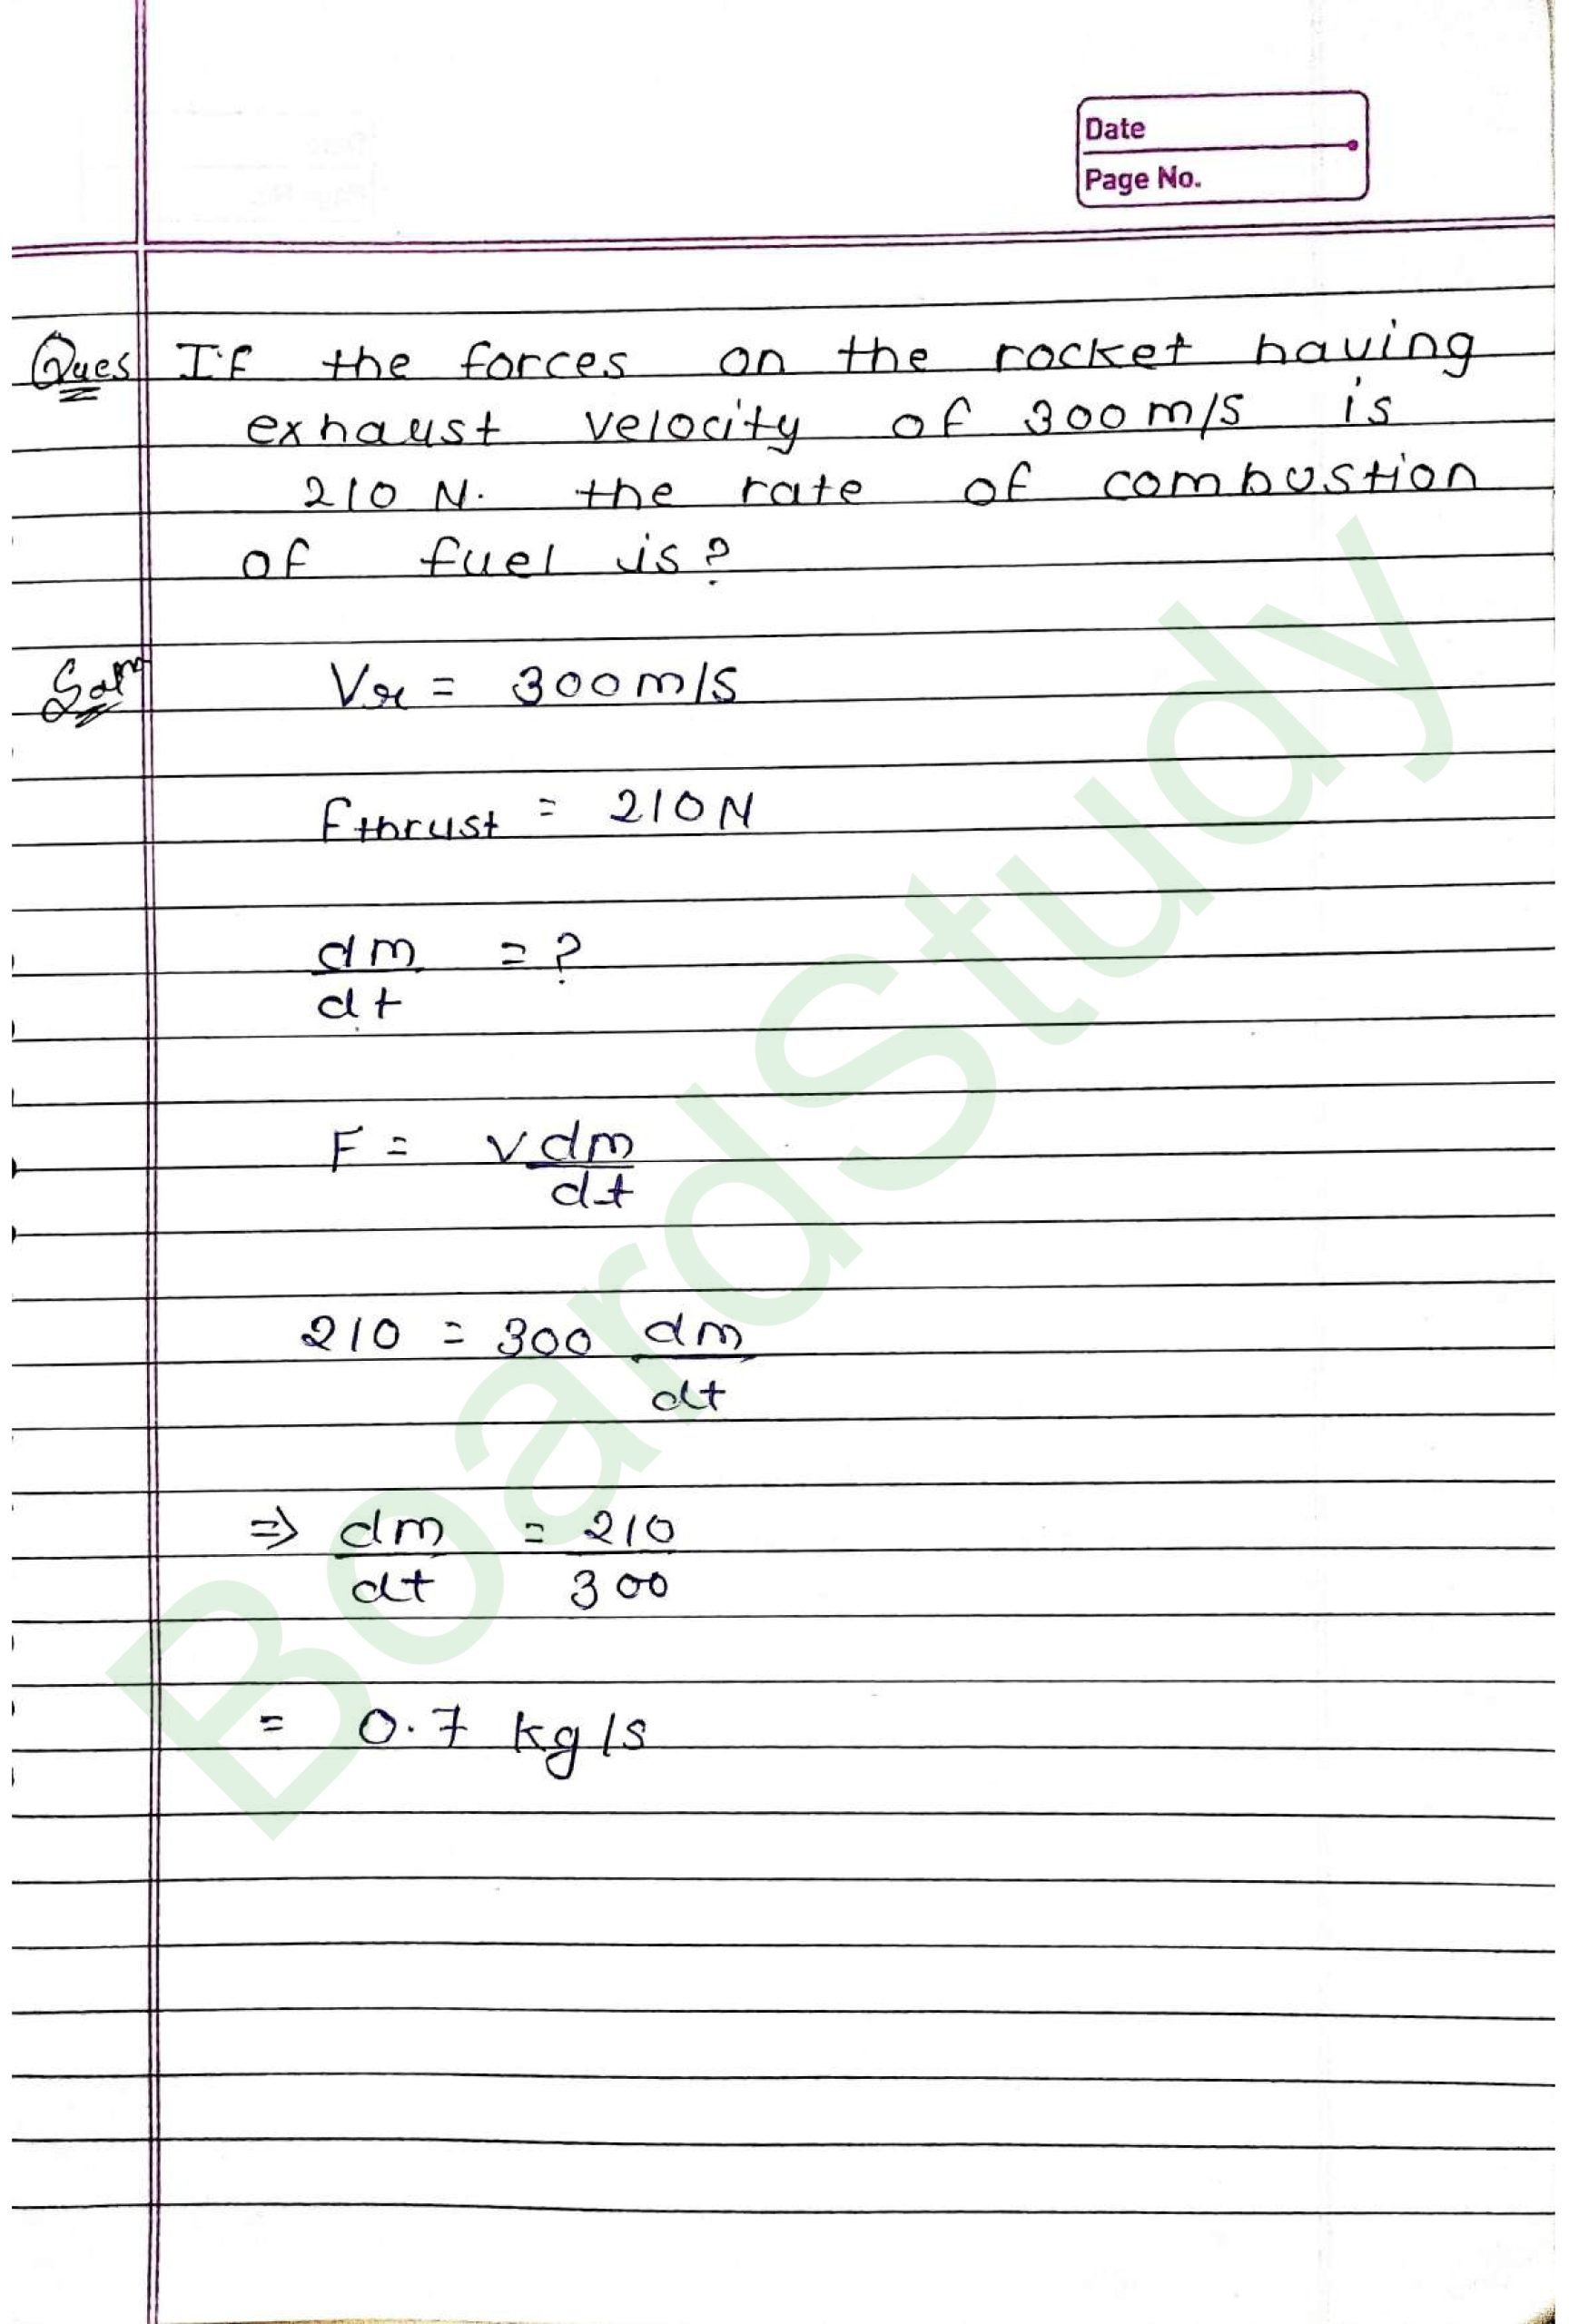 Date
Page No.
Ques If the forces on the rocket having
exhaust velocity of 300 m/s is
210 N. the rate of combustion
of fuel is?
Soln Vr = 300 m/s
Fthrust = 210 N
dm/dt = ?
F = v dm/dt
210 = 300 dm/dt
=> dm/dt = 210/300
= 0.7 kg/s
BoardStudy